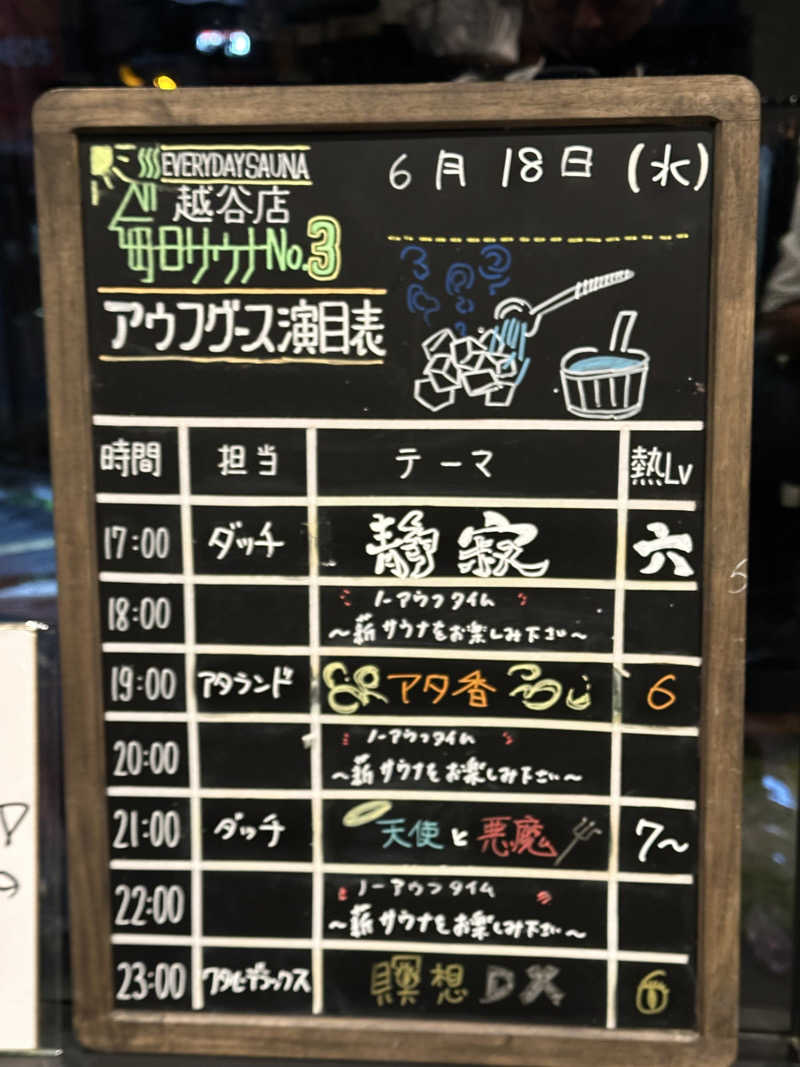 EVERYDAY SAUNA
越谷店
毎日サウナNo.3
6月18日(水)
アウフグース演目表
時間 担当 テーマ 熱Lv
17:00 ダッチ 静寂 六
18:00 ノーアウフタイム
～薪サウナをお楽しみ下さい～
19:00 アタランド アタ香 6
20:00 ノーアウフタイム
～薪サウナをお楽しみ下さい～
21:00 ダッチ 天使と悪魔 7～
22:00 ノーアウフタイム
～薪サウナをお楽しみ下さい～
23:00 ワタヒデラックス 瞑想DX 6